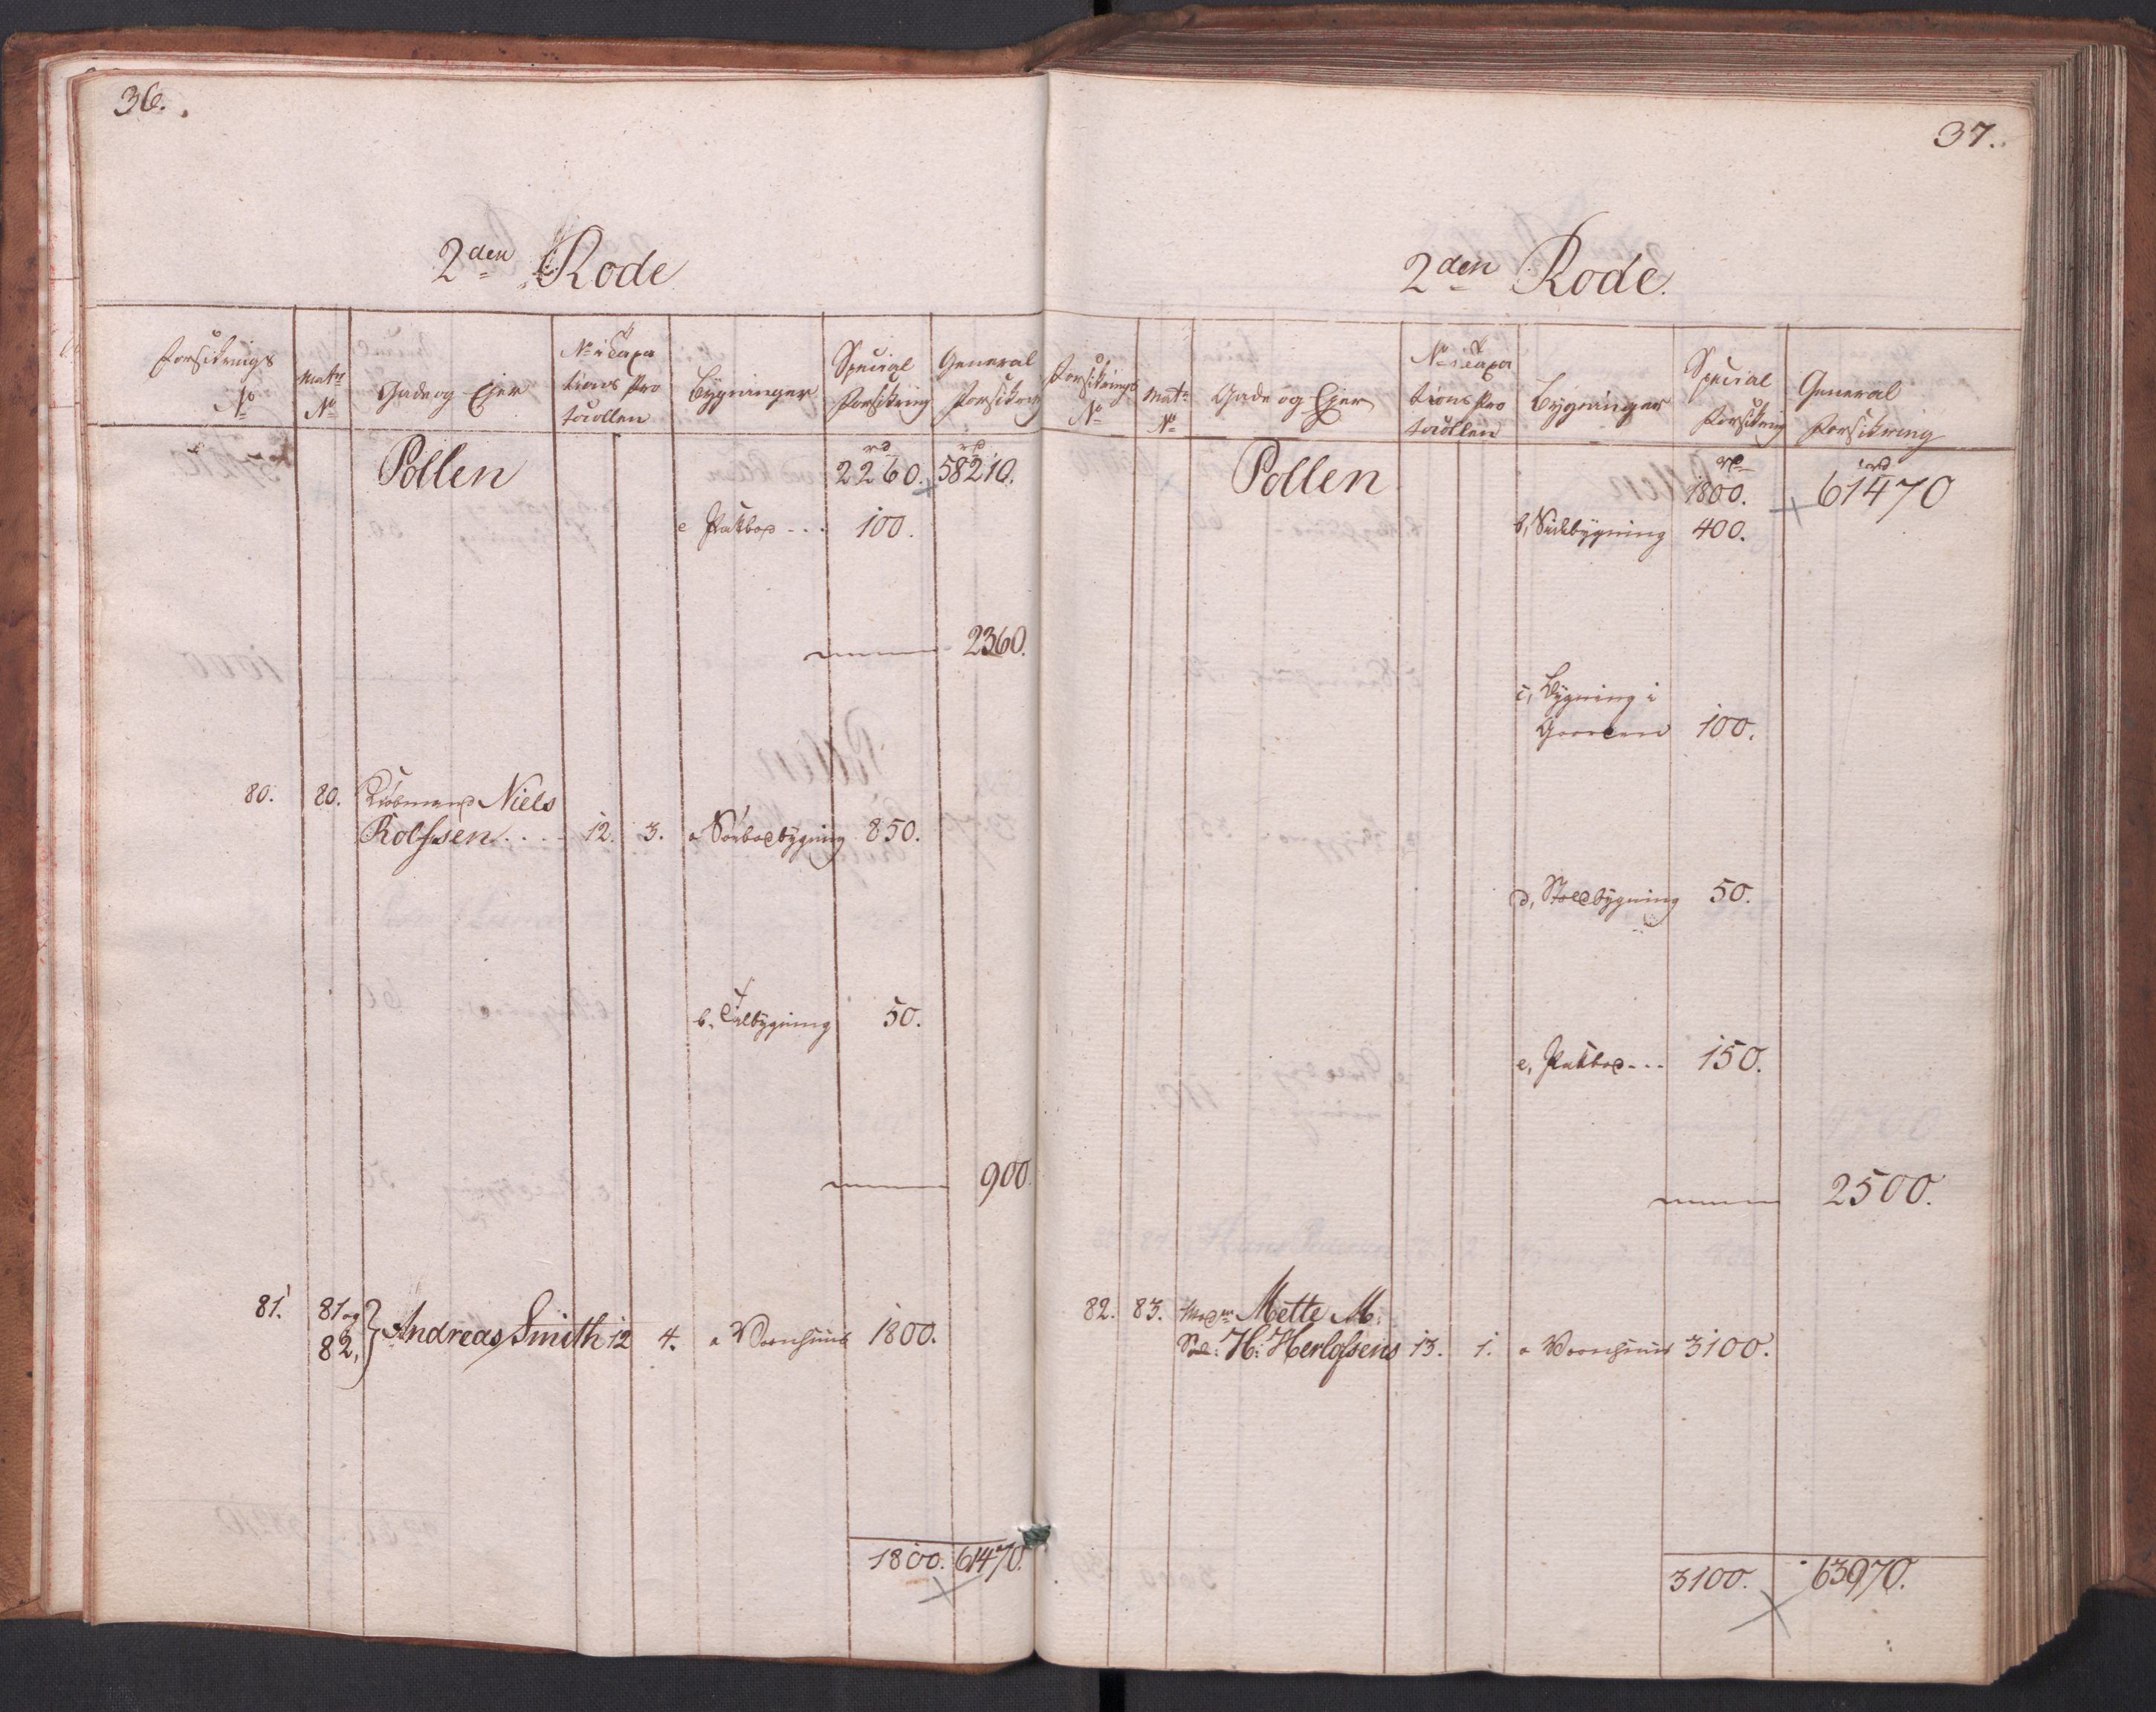 36.
2den Rode
Forsikrings No
Matr No
Gade og Ejer
No i Taxations Protocollen
Bygninger
Special Forsikring
General Forsikring
Pollen
rd 2260. rd 58210.
c Pakboe - - - 100.
2360.
80. 80. Kiøbmand Niels
Rolfsen . . . . 12. 3. a Søeboebygning 850.
b. Tilbygning 50.
900.
81. 81 og
82, } Andreas Smith 12 4. a Vaanhuus 1800.
1800. 61470.
37.
2den Rode.
Forsikrings No
Matr No
Gade og Ejer
No i Taxations Protocollen
Bygninger
Special Forsikring
General Forsikring
Pollen
rd 1800. rd 61470
b, Sidebygning 400.
c, Bygning i
Gaarden 100.
d, bygning 50.
e, Pakboe - - - 150.
2500.
82. 83. Madm Mette M:
Sal: H: Herlofsens 13. 1. a Vaanhuus 3100.
3100. 63970.